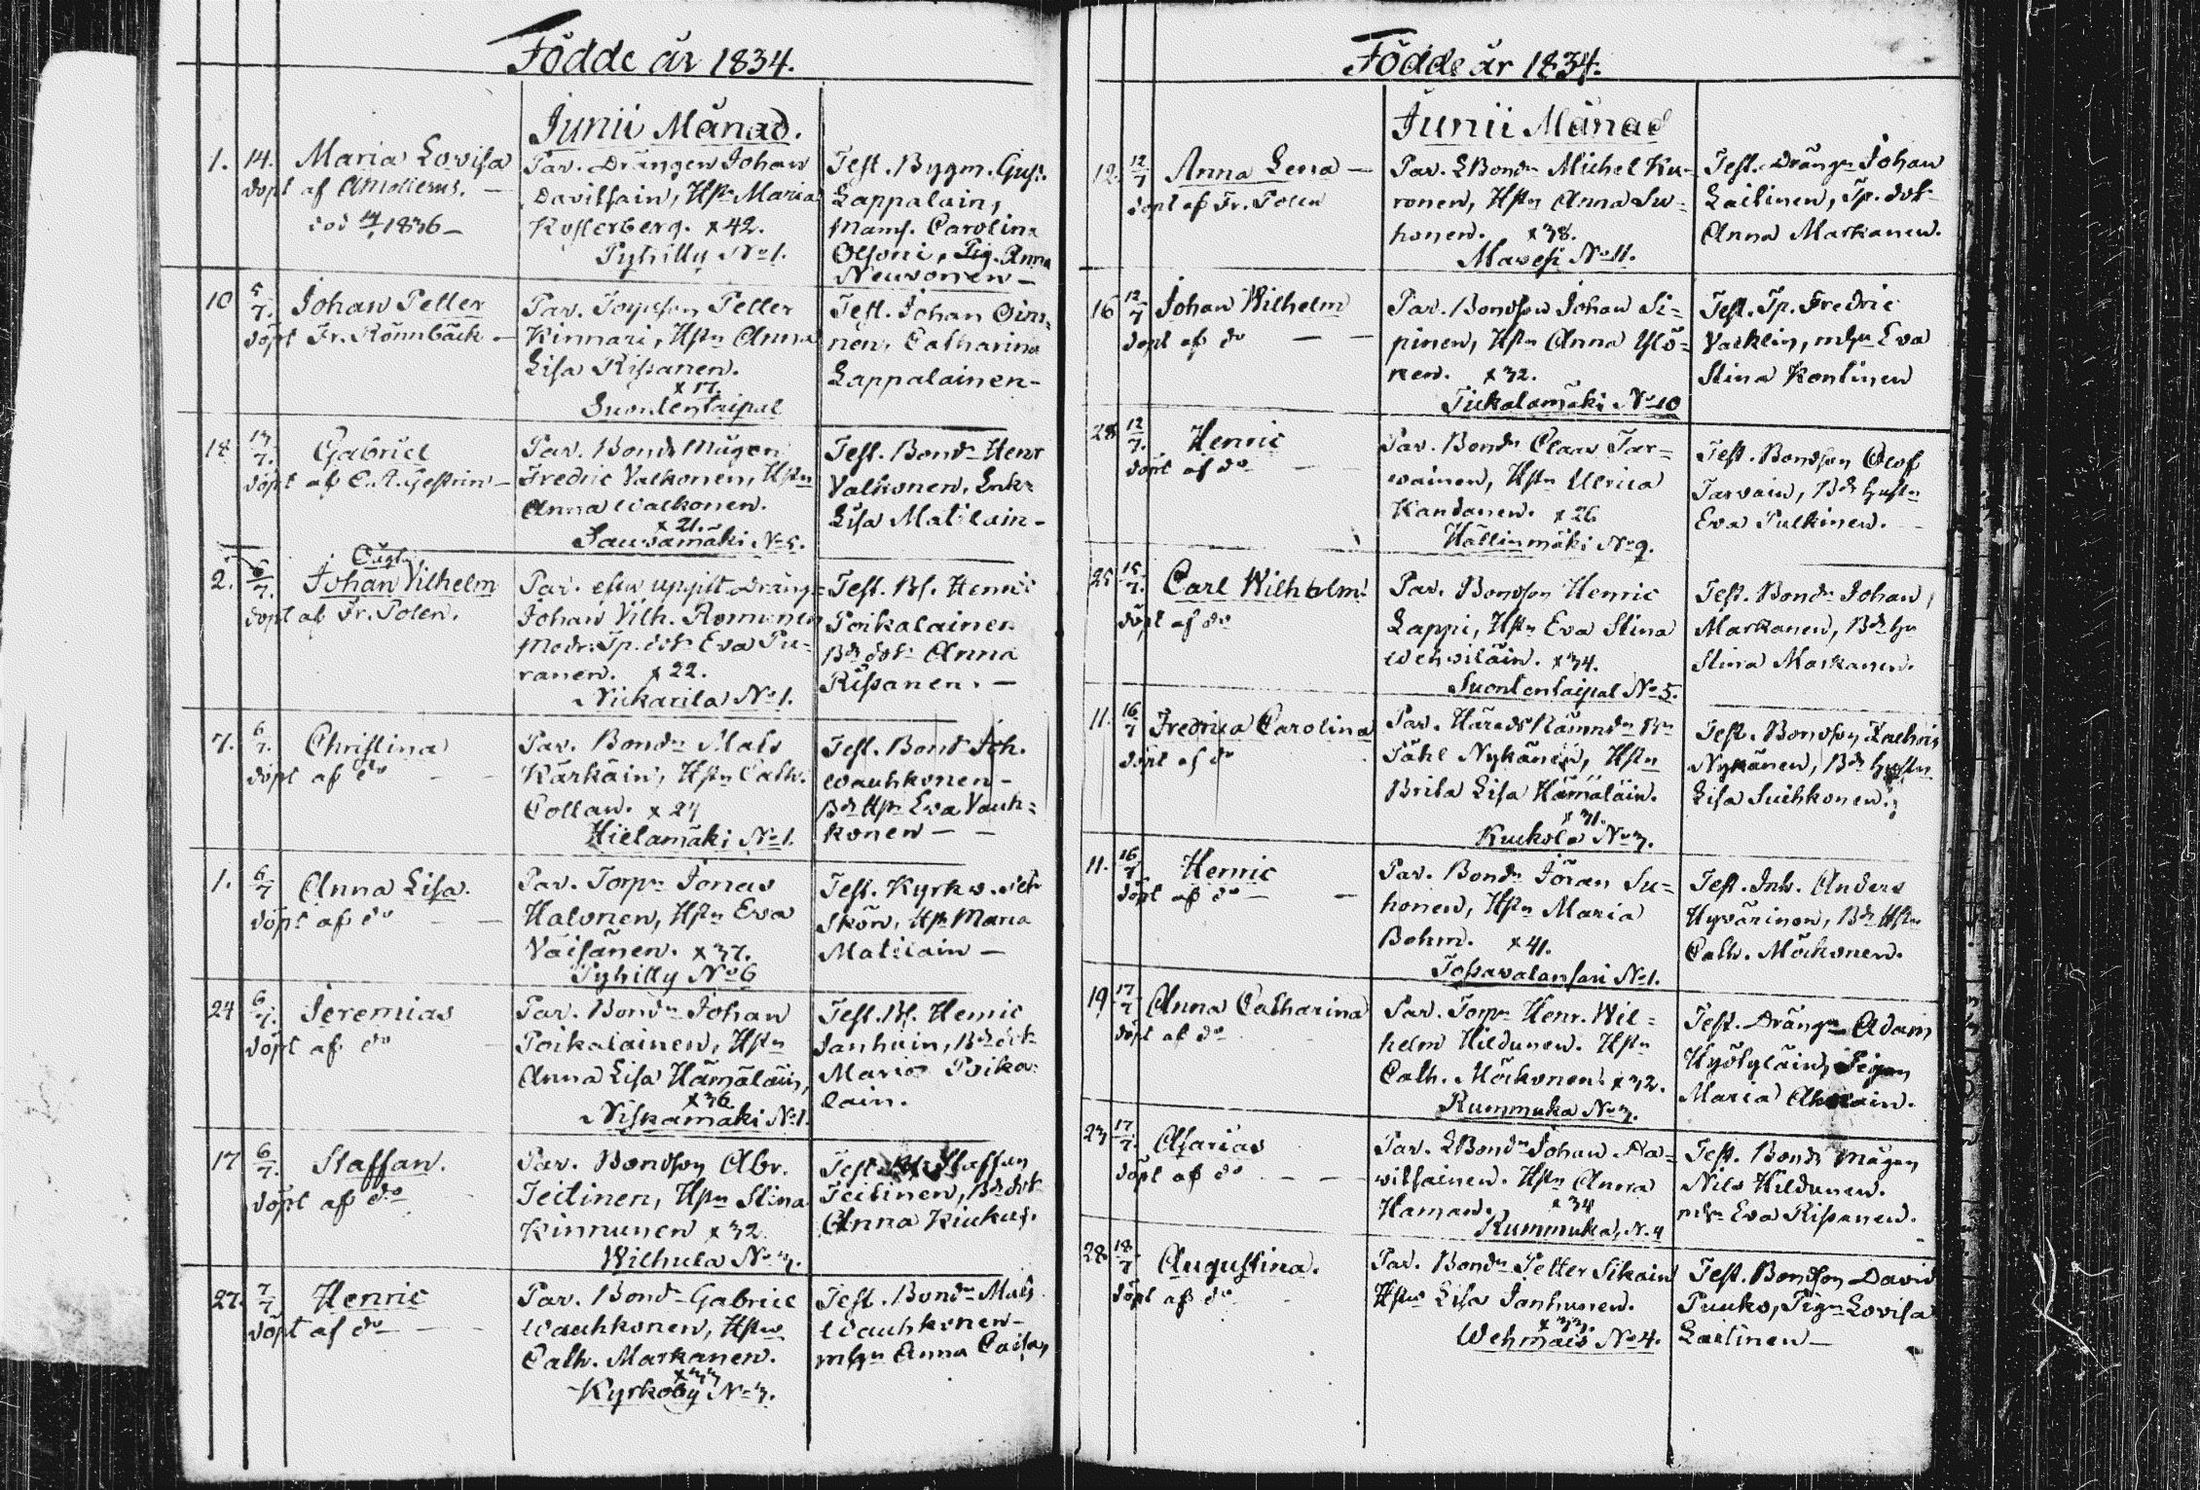 Födde år 1834.
Junii Månad.
1. 14. Maria Lovisa
döpt af
död 1836
Par. Drängen Johan
Davitsain, Hstr Maria
Kosterberg. x 42.
Pyhitty No 1.
Test. Bygm. Gust.
Lappalain,
Mams. Carolina
Olsoni, Pig. Anna
Neuvonen
10 5/7. Johan Petter
döpt Fr. Rönnbäck
Par. Torpson Petter
Kinnari, Hstn Anna
Lisa Rissanen.
x 17.
Suontentaipal
Test. Johan Oini-
nen, Catharina
Lappalainen
18 /7. Gabriel
döpt af C. A. Gestrin
Par. Bonde Mågen
Fredric Valkonen, Hstn
Anna Walkonen.
x 21.
No 5.
Test. Bondn Henr
Valkonen, Enk:
Lisa Matilain
2. 6/7. Aug.
Johan Vilhelm
döpt af Fr. Polen.
Par. efter uppgift Dräng:
Johan Vilh. Romunen
Modr: Tp. dotr Eva Pu-
ranen. x 22.
Nickarila No 1.
Test. Bs. Henric
Poikalainen
Bd. dotr Anna
Rissanen.
7. 6/7. Christina
döpt af do
Par. Bondn Mats
Kärkäin, Hstn Cath.
Collan. x 24
Hietamäki No 1.
Test. Bond Joh.
Wauhkonen
Bd Hstr Eva Vauh-
konen
1. 6/7 Anna Lisa.
döpt af do
Par. Torpn Jonas
Halonen, Hstn Eva
Väisänen. x 37.
Pyhitty No 6
Test. Kyrkv.
Skön, Hstr Maria
Matilain
24 6/7. Jeremias
döpt af do
Par. Bondn Johan
Poikalainen, Hstn
Anna Lisa Hämäläin,
x 36
Niskamäki No 1.
Test. Bs. Henric
Janhuin, Bd dotr
Maria Poika-
lain.
17 6/7. Staffan.
döpt af do
Par. Bondson Abr.
Teitinen, Hstn Stina
Kinnunen x 32.
Wilhula No 3.
Test. Staffan
Teitinen, Bd dotr
Anna Kiukas.
27. 7/7 Henric
döpt af do
Par. Bondn Gabriel
Wauhkonen, Hstn
Cath. Markanen.
x 33
Kyrkoby No 3.
Test. Bondn Mats
Wauhkonen
mhn Anna Caisa,
Födde år 1834.
Junii Månad
12. 12/7 Anna Lena
döpt af Fr. Polen
Par. LBondn Michel Ku-
ronen, Hstn Anna Su-
honen. x 38.
Mavesi No 11.
Test. Drängn Johan
Laitinen, Tp. dotr
Anna Markanen.
16 12/7 Johan Wilhelm
döpt af do
Par. Bondson Johan Si-
pinen, Hstn Anna Ylö-
nen. x 32.
Tiukalamäki No 10
Test. Tp. Fredric
Vacklin, mhn Eva
Stina Kontinen
28 12/7. Henric
döpt af do
Par. Bondn Claes Tar-
wainen, Hstn Ulrica
Kandanen. x 26
Hällinmäki No 9.
Test. Bondson Olof
Tarvain, Bd hustn
Eva Pulkinen.
25 15/7. Carl Wilhelm
döpt af do
Par. Bondson Henric
Lappi, Hstn Eva Stina
Wehviläin. x 34.
Suontentaipal No 5.
Test. Bondn Johan
Markanen, Bd hu
Stina Markanen.
11. 16/7 Fredrica Carolina
döpt af do
Par. Härads Nämndn Bn
Påhl Nykänen, Hstn
Brita Lisa Hämäläin.
x 31.
Kuckola No 3.
Test. Bondson Zachris
Nykänen, Bd hustn
Lisa Suihkonen.
11. 16/7 Henric
döpt af do
Par. Bondn Jöran Su-
honen, Hstn Maria
Bohm. x 41.
Tossavalansari No 1.
Test. Inh. Anders
Hyvärinen, Bd Hstn
Cath. Möckonen.
19 17/7 Anna Catharina
döpt af do
Par. Torpn Henr. Wil-
helm Hildunen. Hstn
Cath. Möckonen x 32.
Rummuka No 3.
Test. Drängn Adam
Hyötyläin, Pigan
Maria
23 17/7. Asarias
döpt af do
Par. LBondn Johan Da-
vitsainen. Hstn Anna
Haman. x 34
Rummuka, N. 4
Test. Bonde Mågen
Nils Hildunen.
mhn Eva Rissanen.
28 18/7 Augustina.
döpt af do
Par. Bondn Petter Sikain
Hstn Lisa Janhunen.
x 33.
Wehmais No 4.
Test. Bondson David
Puuko, Pign Lovisa
Laitinen